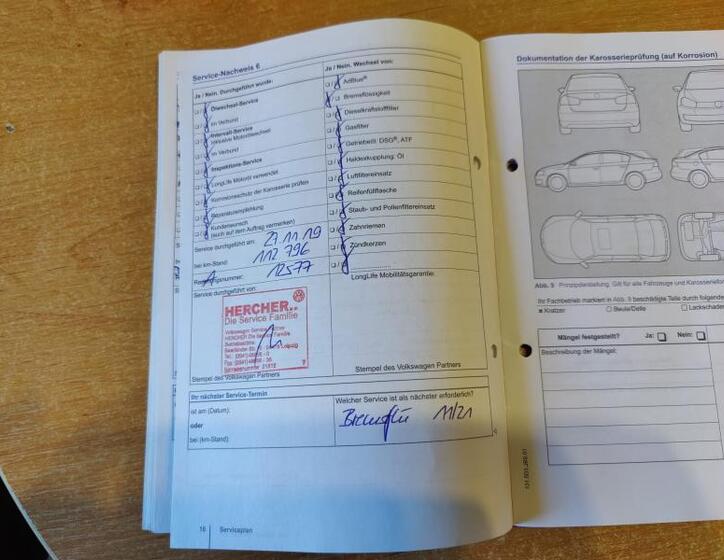 Service-Nachweis 6
Ja / Nein. Durchgeführt wurde:
Ölwechsel-Service
im Verbund
Intervall-Service
inklusive Motorölwechsel
im Verbund
Inspektions-Service
LongLife Motoröl verwendet
Korrosionsschutz der Karosserie prüfen
Reparaturempfehlung
Kundenwunsch
(auch auf dem Auftrag vermerken)
Service durchgeführt am: 27 11 19
bei km-Stand: 112 796
12577
Service durchgeführt von:
HERCHER..
Die Service Familie
HERCHER Die Service Familie
Stempel des Volkswagen Partners
Ja / Nein. Wechsel von:
AdBlue®
Bremsflüssigkeit
Dieselkraftstofffilter
Gasfilter
Getriebeöl: DSG®, ATF
Haldexkupplung: Öl
Luftfiltereinsatz
Reifenfüllflasche
Staub- und Pollenfiltereinsatz
Zahnriemen
Zündkerzen
LongLife Mobilitätsgarantie:
Stempel des Volkswagen Partners
Ihr nächster Service-Termin
ist am (Datum):
oder
bei (km-Stand):
Welcher Service ist als nächster erforderlich?
11/21
16 Serviceplan
Dokumentation der Karosserieprüfung (auf Korrosion)
Abb. 5 Prinzipdarstellung. Gilt für alle Fahrzeuge und Karosserie
Ihr Fachbetrieb markiert in Abb. 5 beschädigte Teile durch folgende
Kratzer Beule/Delle Lackschade
Mängel festgestellt? Ja: Nein:
Beschreibung der Mängel: